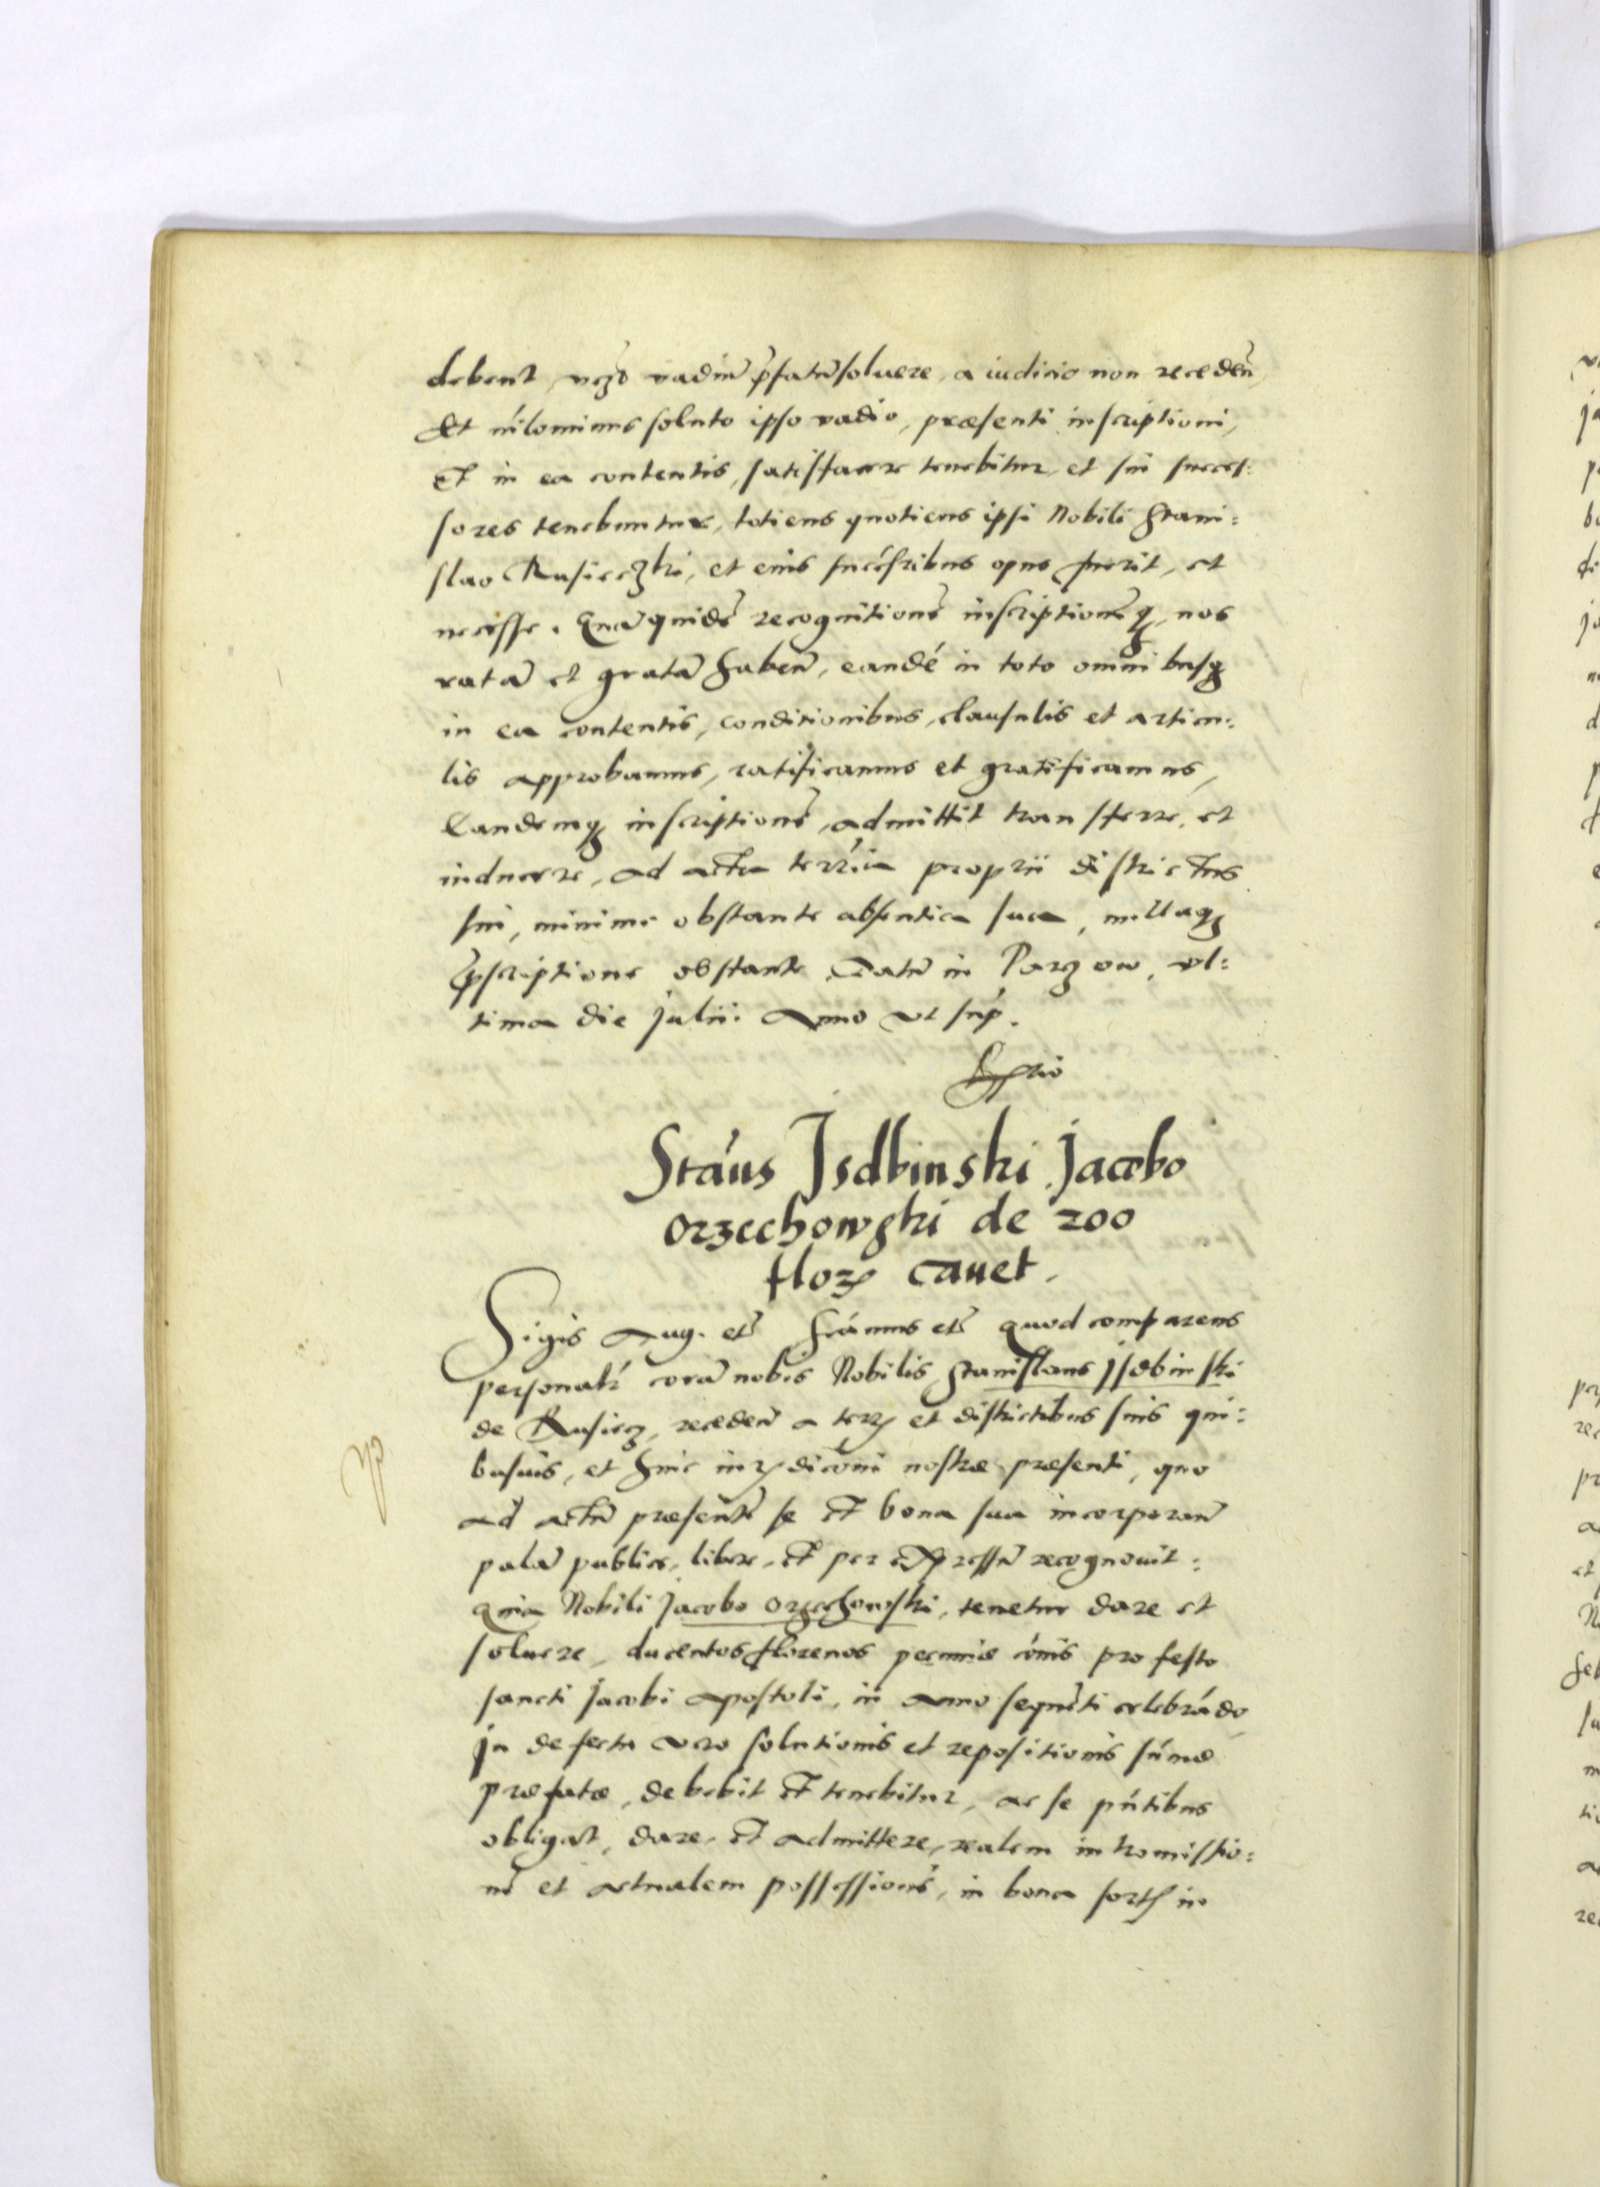 debent, vadiũ p̃fatũ soluere, a iudicio non recedeñ,
Et nilominus soluto ipso vadio, præsenti inscriptioni,
Et in ea contentis, satisfacere tenebitur et sui succes:
sores tenebuntur, totiens quotiens ipsi Nobili Stani:
slao Rusieczki, et eius succeſribus opus fuerit, et
necesse. Quã quidẽ recognitionẽ inscriptionẽq₃, nos
ratã et gratã habeñ, eandé in toto omnibusq₃
in ea contentis, conditionibus, clausulis et articu:
lis approbamus, ratificamus et gratificamus,
Eandemq₃ inscriptionẽ, admittit transferre, et
inducere, ad acta terria proprii districtus
sui, minime obstante absentia sua, nullaq₃
p̃scriptione obstante. Datũ in Parzow, vl:
tima die Julii. Anno vt sup̃.
Stãus Jsdbinski Jacobo
Orzechowski de 200
floꝝ cauet.
Sigis Aug. etc̃ Scimus etc̃ quod comparens
personalr̃ corã nobis Nobilis Stanislaus Jsdbinski
de Rusiecz, recedeñ a terꝝ et districtibus suis qui:
busuis, et huic inꝝdicõni nostræ præsenti, quo
ad actũ præsentẽ se et bona sua incorporañ
palã publice, libere, et per expressũ recognouit:
Quia Nobili Jacobo Orzechowski, tenetur dare et
soluere, ducentos florenos pecuniæ cõnis pro festo
sancti Jacobi Apostoli, in Anno sequẽti celebrãdo,
Jn defectu vero solutionis et repositionis sũmæ
præfatæ, debebit et tenebitur, ac se pñtibus
obligat, dare, et admittere, realem intromissio:
nẽ et actualem possessionẽ, in bona sortꝭ in